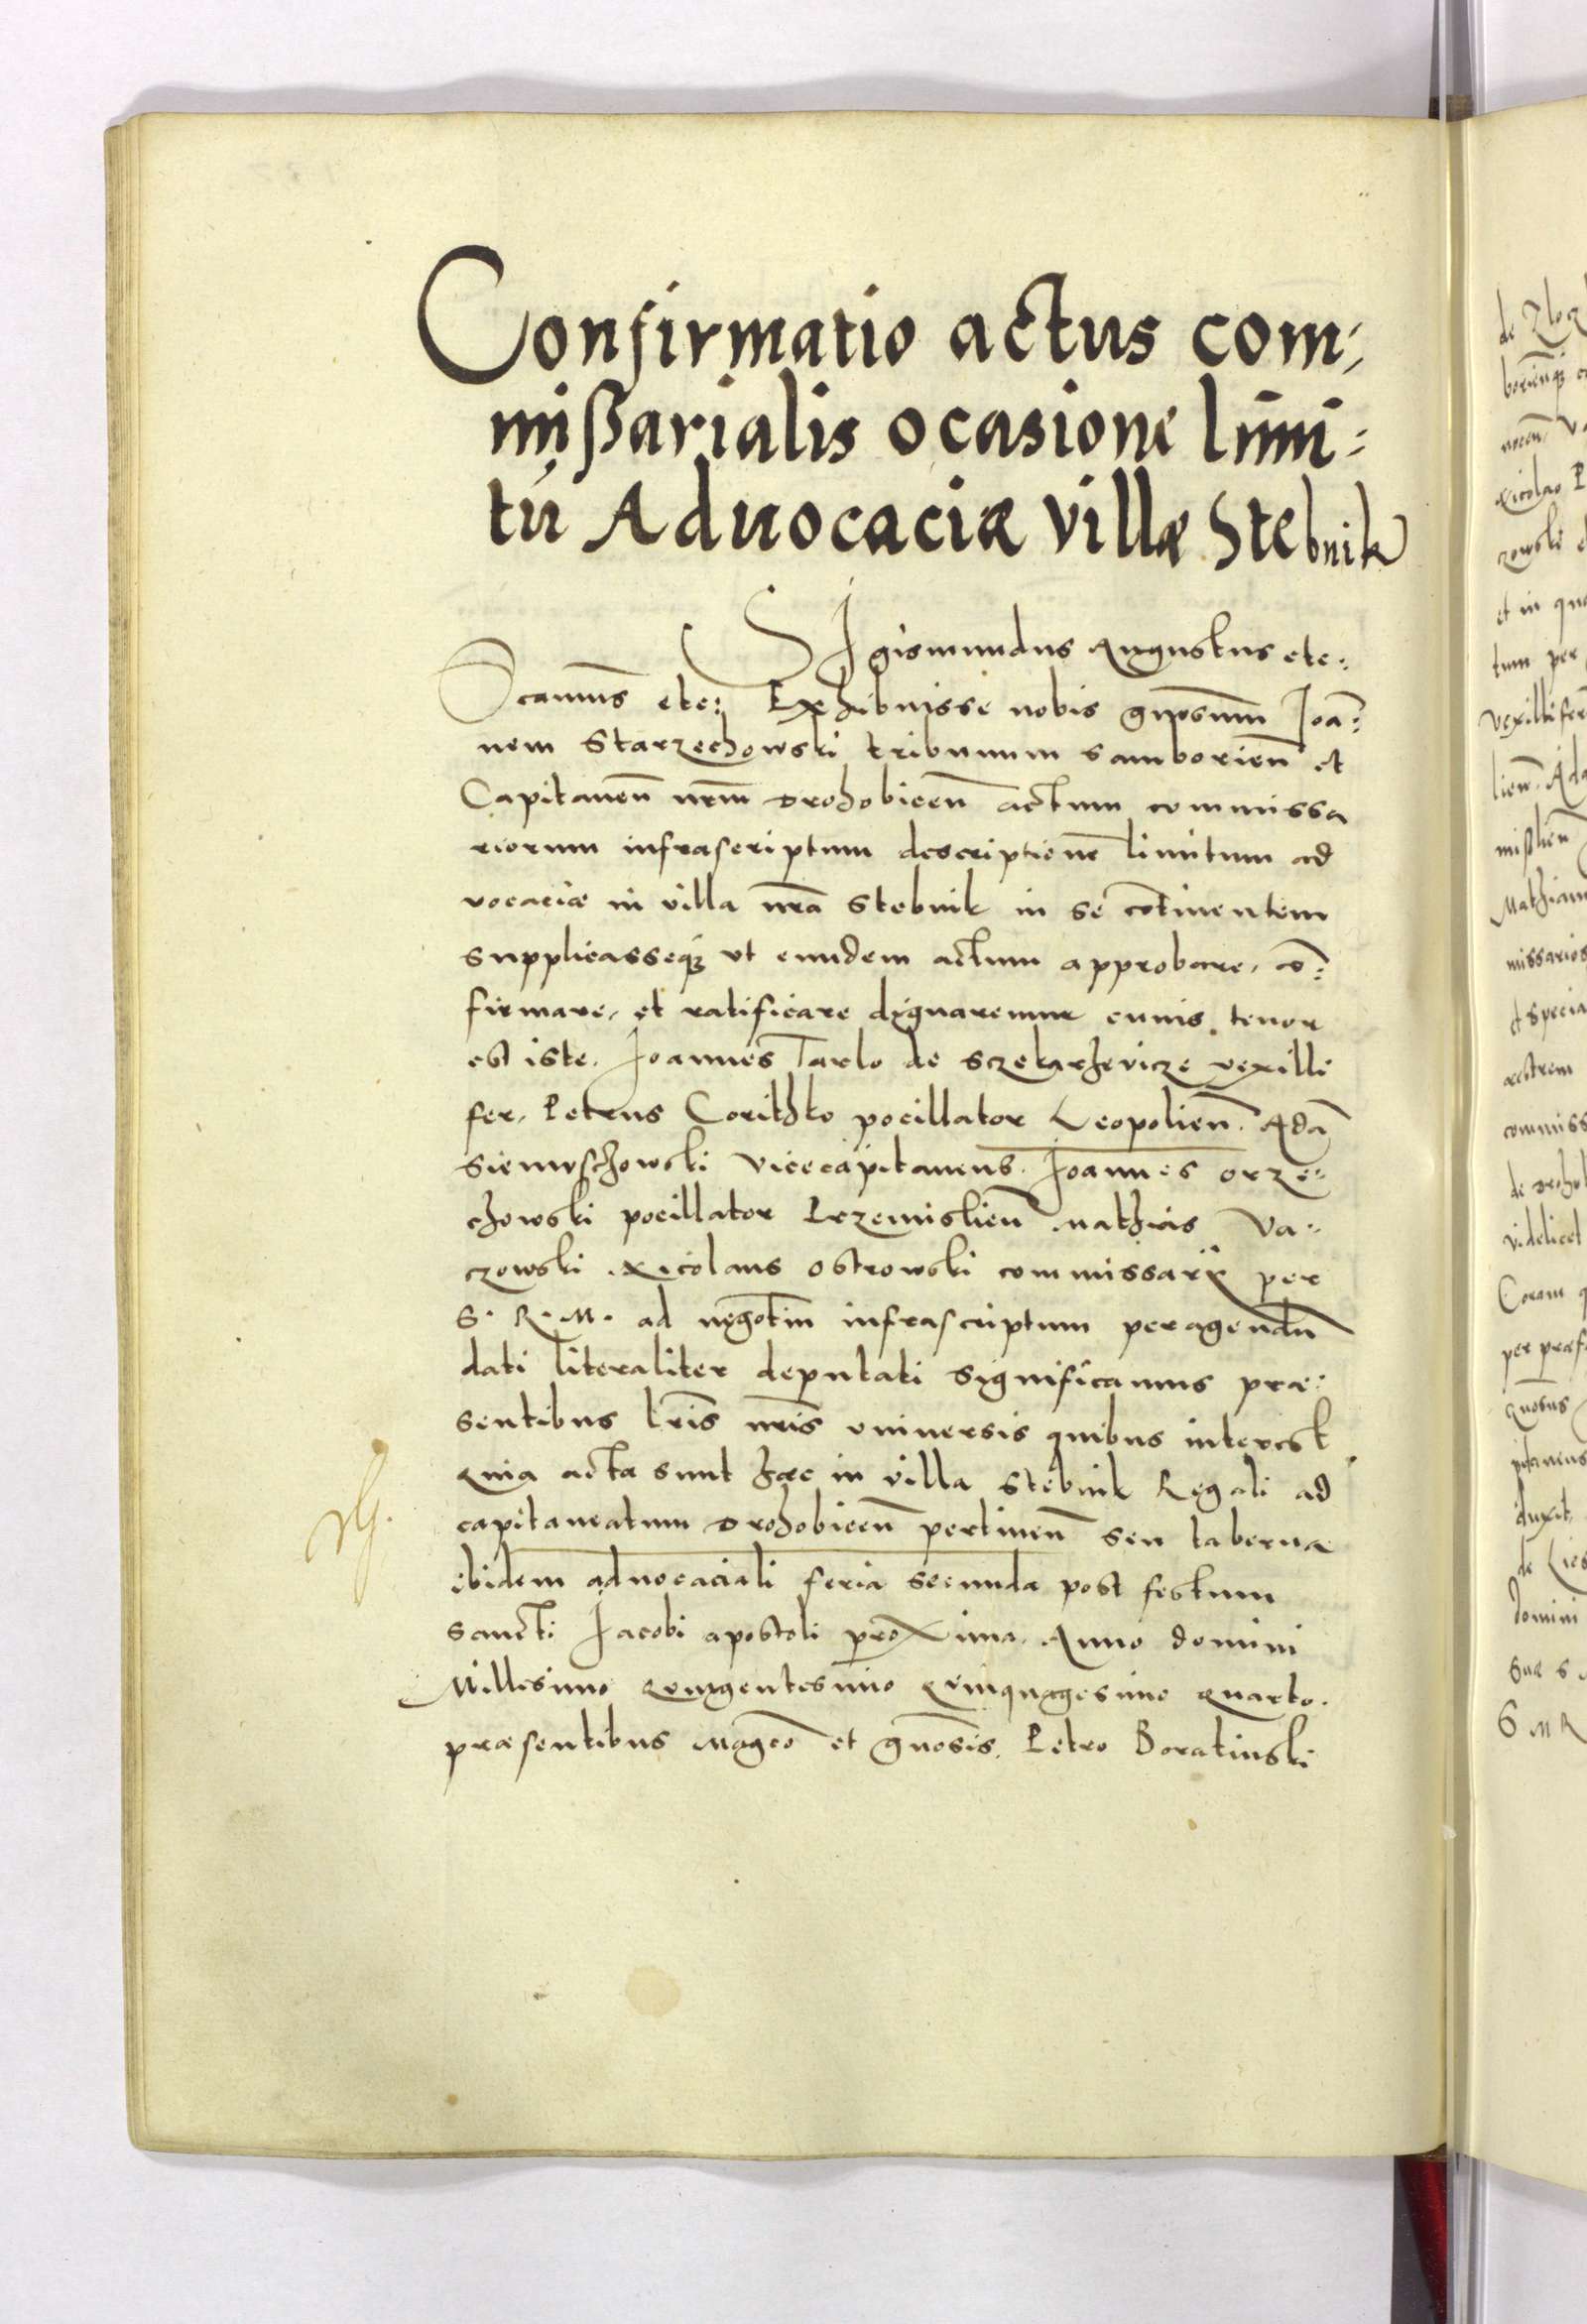 Confirmatio actus com,
mißarialis ocasione limi=
tū Aduocaciæ villæ Stebnik
SIgismundus Augustus etc:
Ocamus etc: Exhibuisse nobis gnosum Joā:
nem Starzechowski tribunum samborien̄ et
Capitaneū nrm̄ Drohobicen̄ actum commissa
riorum infrascriptum descriptionē limitum ad
vocaciæ in villa nrā Stebnik in se cōtinentem
supplicasseq3 vt eundem actum approbare, cō:
firmare, et ratificare dignaremur cuius tenor
est iste. Joannes Tarlo de Sczekarzevicze vexilli
fer, Petrus Corithko pocillator Leopolien̄. Adā
Sienwschowski Vicecapitaneus. Joannes orze:
chowski pocillator Przemislien̄ Mathias Va:
czowski Nicolaus Ostrowski commissarij per
S. R. M. ad negotiū infrascriptum peragendū
dati literaliter deputati significamus præ:
sentibus lris̄ nris̄ vniuersis quibus interest
Quia acta sunt hæc in villa Stebnik Regali ad
capitaneatum Drohobicen̄ pertinen̄ seu taberna
ibidem aduocaciali feria secunda post festum
sancti Jacobi apostoli proxima. Anno domini
Millesimo Quingentesimo Quinquagesimo Quarto.
præsentibus Magco et gnosis. Petro Boratinski
de
Nicolao
zowski
et in
tum per
vexillifer
lien̄. Ada
mislien̄
Mathiam
missarios
et specia
commiss
videlicet
Coram
per præf
quobus
duxit,
domini
S M R